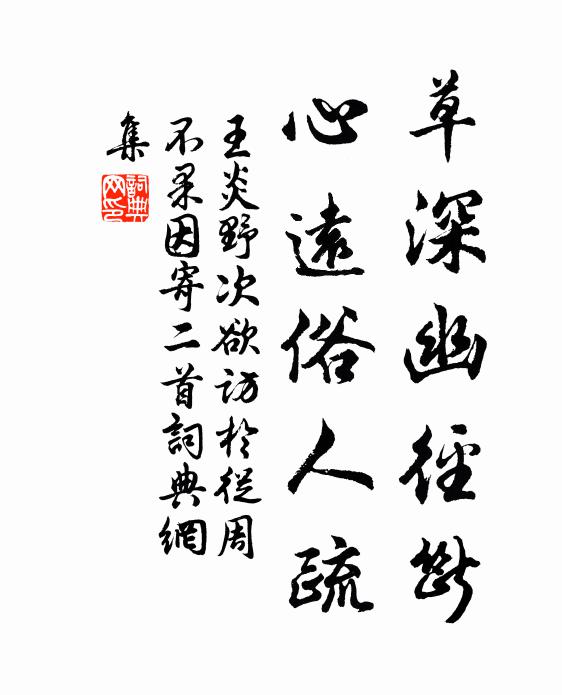 草深幽徑斷
心遠俗人疏
王炎野次欲访於從周
不果因寄二首詞典網
集
詞典网印